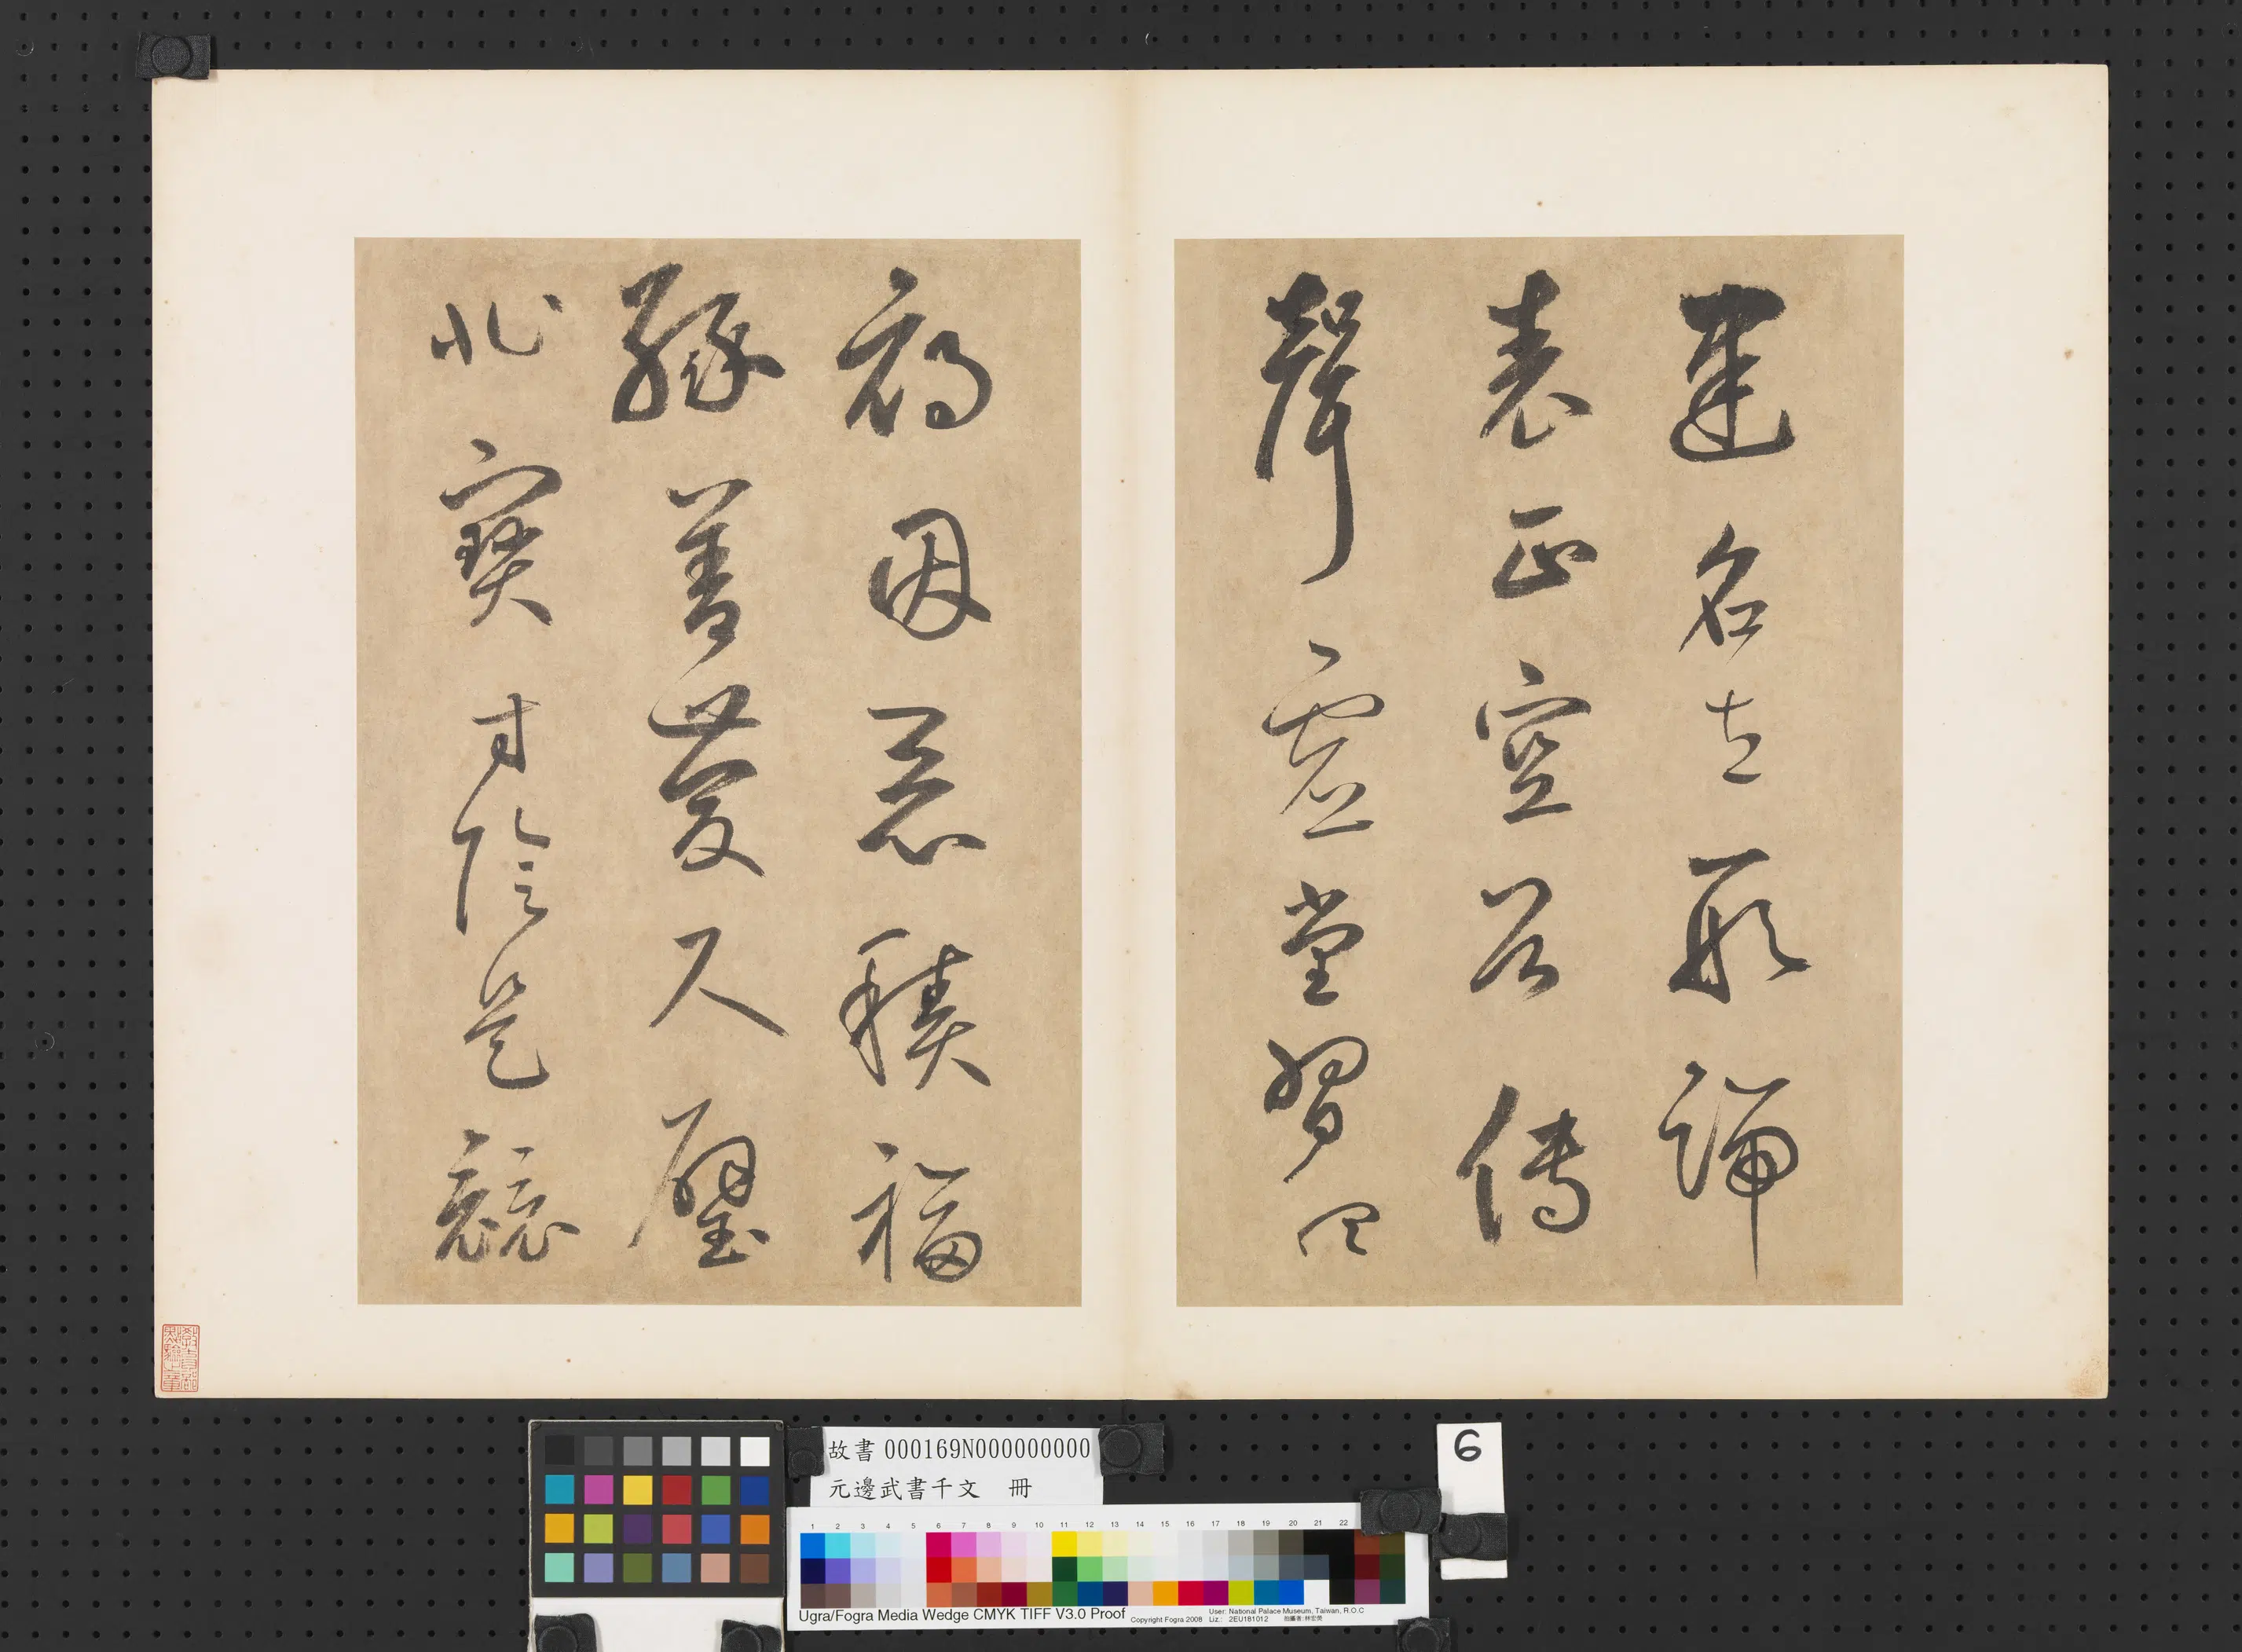 建名立形端
表正空谷傳
聲虛堂習聽
禍因惡積福
緣善慶尺璧
非寶寸陰是競
教育部點驗之章
故書 000169N000000000
元邊武書千文 冊
6
1 2 3 4 5 6 7 8 9 10 11 12 13 14 15 16 17 18 19 20 21 22
Ugra/Fogra Media Wedge CMYK TIFF V3.0 Proof
Copyright Fogra 2008
User: National Palace Museum, Taiwan, R.O.C
Liz.: 2EU181012